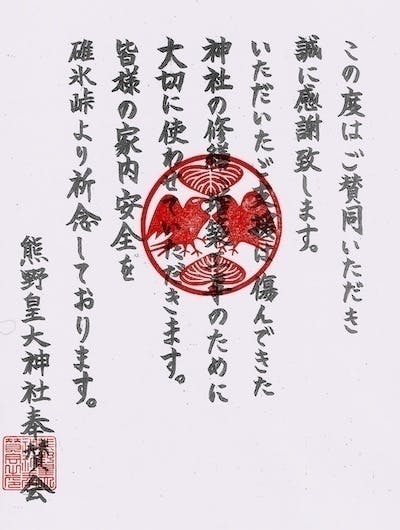 この度はご賛同いただき
誠に感謝致します。
いただいたご支援は傷んできた
神社の修繕・改築等のために
大切に使わせていただきます。
皆様の家内安全を
碓氷峠より祈念しております。
熊野皇大神社奉賛会